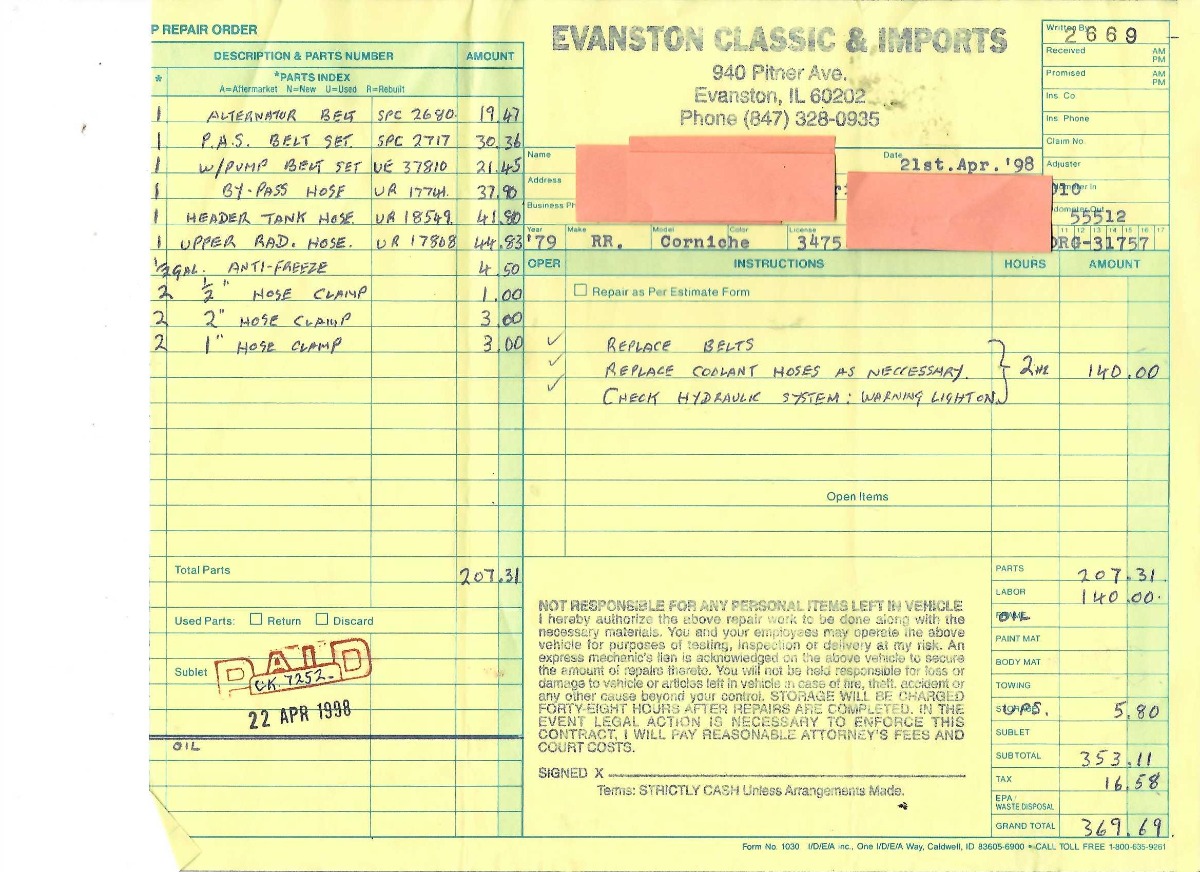 P REPAIR ORDER
DESCRIPTION & PARTS NUMBER AMOUNT
* *PARTS INDEX
A=Aftermarket N=New U=Used R=Rebuilt
1 ALTERNATOR BELT SPC 2680. 19.47
1 P.A.S. BELT SET. SPC 2717 30.36
1 W/PUMP BELT SET UE 37810 21.45
1 BY-PASS HOSE UR 17741. 37.90
1 HEADER TANK HOSE UR 18549. 41.80
1 UPPER RAD. HOSE. UR 17868 44.83
1/2 GAL. ANTI-FREEZE 4.50
2 1/2" HOSE CLAMP 1.00
2 2" HOSE CLAMP 3.00
2 1" HOSE CLAMP 3.00
Total Parts 207.31
Used Parts: Return Discard
Sublet
PAID
CK. 7252.
22 APR 1998
OIL
EVANSTON CLASSIC & IMPORTS
940 Pitner Ave.
Evanston, IL 60202
Phone (847) 328-0935
Written By 2669
Received AM PM
Promised AM PM
Ins. Co
Ins. Phone
Claim No.
Adjuster
Name Date 21st.Apr.'98
Address
Business Ph
010
55512
Year Make Model Color License
'79 RR. Corniche 3475 DRG-31757
11 12 13 14 15 16 17
OPER INSTRUCTIONS HOURS AMOUNT
Repair as Per Estimate Form
✓ REPLACE BELTS
✓ REPLACE COOLANT HOSES AS NECCESSARY. 2 HR 140.00
✓ CHECK HYDRAULIC SYSTEM: WARNING LIGHT ON.
Open Items
NOT RESPONSIBLE FOR ANY PERSONAL ITEMS LEFT IN VEHICLE
I hereby authorize the above repair work to be done along with the
necessary materials. You and your employees may operate the above
vehicle for purposes of testing, inspection or delivery at my risk. An
express mechanic's lien is acknowledged on the above vehicle to secure
the amount of repairs thereto. You will not be held responsible for loss or
damage to vehicle or articles left in vehicle in case of fire, theft, accident or
any other cause beyond your control. STORAGE WILL BE CHARGED
FORTY-EIGHT HOURS AFTER REPAIRS ARE COMPLETED. IN THE
EVENT LEGAL ACTION IS NECESSARY TO ENFORCE THIS
CONTRACT, I WILL PAY REASONABLE ATTORNEY'S FEES AND
COURT COSTS.
SIGNED X
Terms: STRICTLY CASH Unless Arrangements Made.
PARTS 207.31
LABOR 140.00.
OIL
PAINT MAT
BODY MAT
TOWING
UPS. 5.80
SUBLET
SUBTOTAL 353.11
TAX 16.58
EPA / WASTE DISPOSAL
GRAND TOTAL 369.69
Form No. 1030 I/D/E/A Inc., One I/D/E/A Way, Caldwell, ID 83605-6900 • CALL TOLL FREE 1-800-635-9261